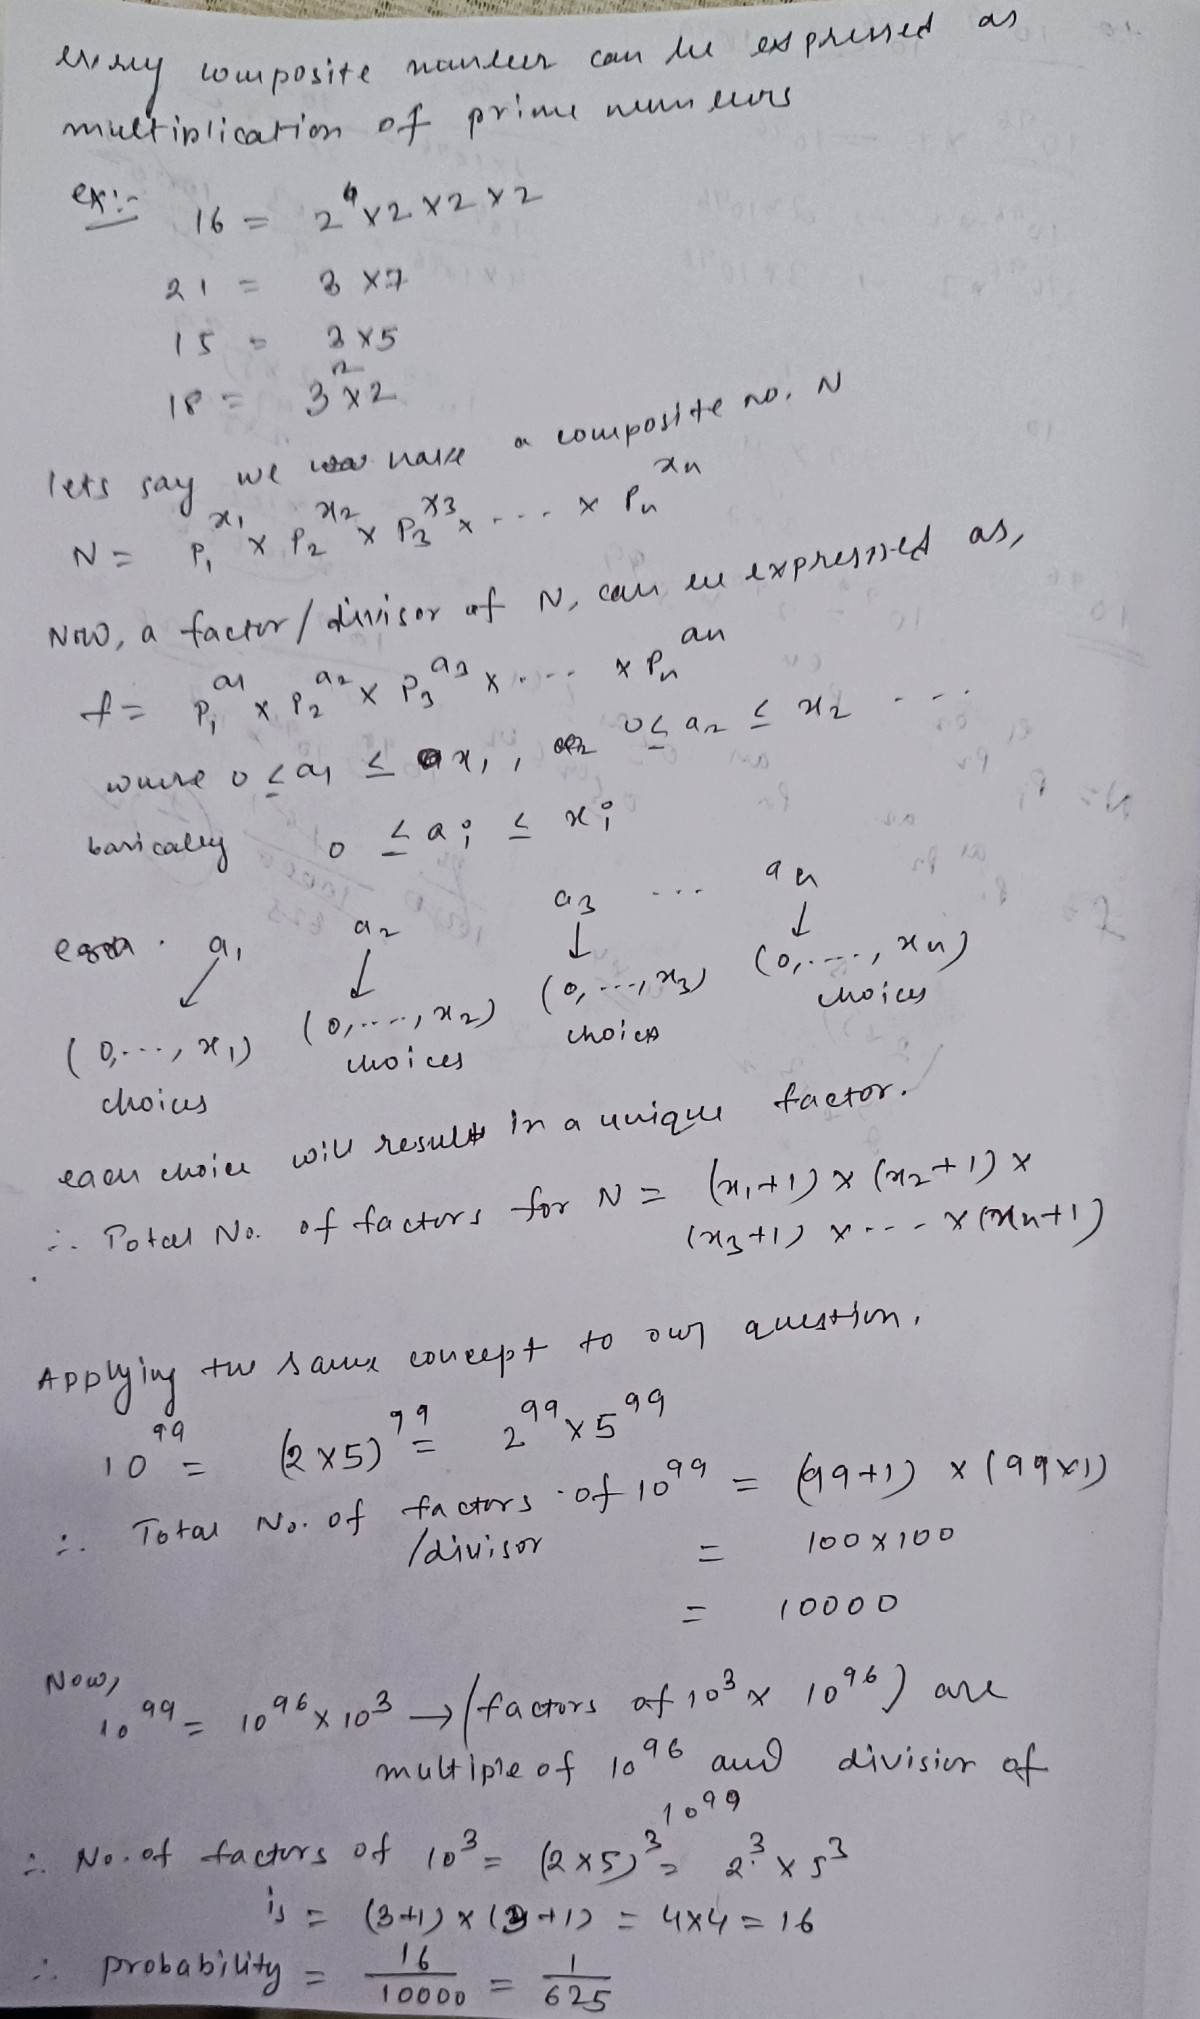 every composite number can be expressed as
multiplication of prime numbers
ex:- 16 = 2⁴ x 2 x 2 x 2
21 = 3 x 7
15 = 3 x 5
18 = 3² x 2
lets say we have a composite no. N
N = P₁^x₁ x P₂^x₂ x P₃^x₃ x .... x Pn^xn
Now, a factor/divisor of N, can be expressed as,
f = P₁^a₁ x P₂^a₂ x P₃^a₃ x .... x Pn^an
where 0 ≤ a₁ ≤ x₁, 0 ≤ a₂ ≤ x₂ ...
basically 0 ≤ ai ≤ xi
a₁ a₂ a₃ ... an
↓ ↓ ↓ ↓
(0,...., x₁) (0,...., x₂) (0,...., x₃) (0,....., xn)
choices choices choices choices
each choice will result in a unique factor.
∴ Total No. of factors for N = (x₁+1) x (x₂+1) x
(x₃+1) x ... x (xn+1)
Applying the same concept to our question,
10⁹⁹ = (2x5)⁹⁹ = 2⁹⁹ x 5⁹⁹
∴ Total No. of factors of 10⁹⁹ = (99+1) x (99x1)
/divisor = 100 x 100
= 10000
Now,
10⁹⁹ = 10⁹⁶ x 10³ → (factors of 10³ x 10⁹⁶) are
multiple of 10⁹⁶ and division of
10⁹⁹
∴ No. of factors of 10³ = (2x5)³ = 2³ x 5³
is = (3+1) x (3+1) = 4x4 = 16
∴ probability = 16/10000 = 1/625